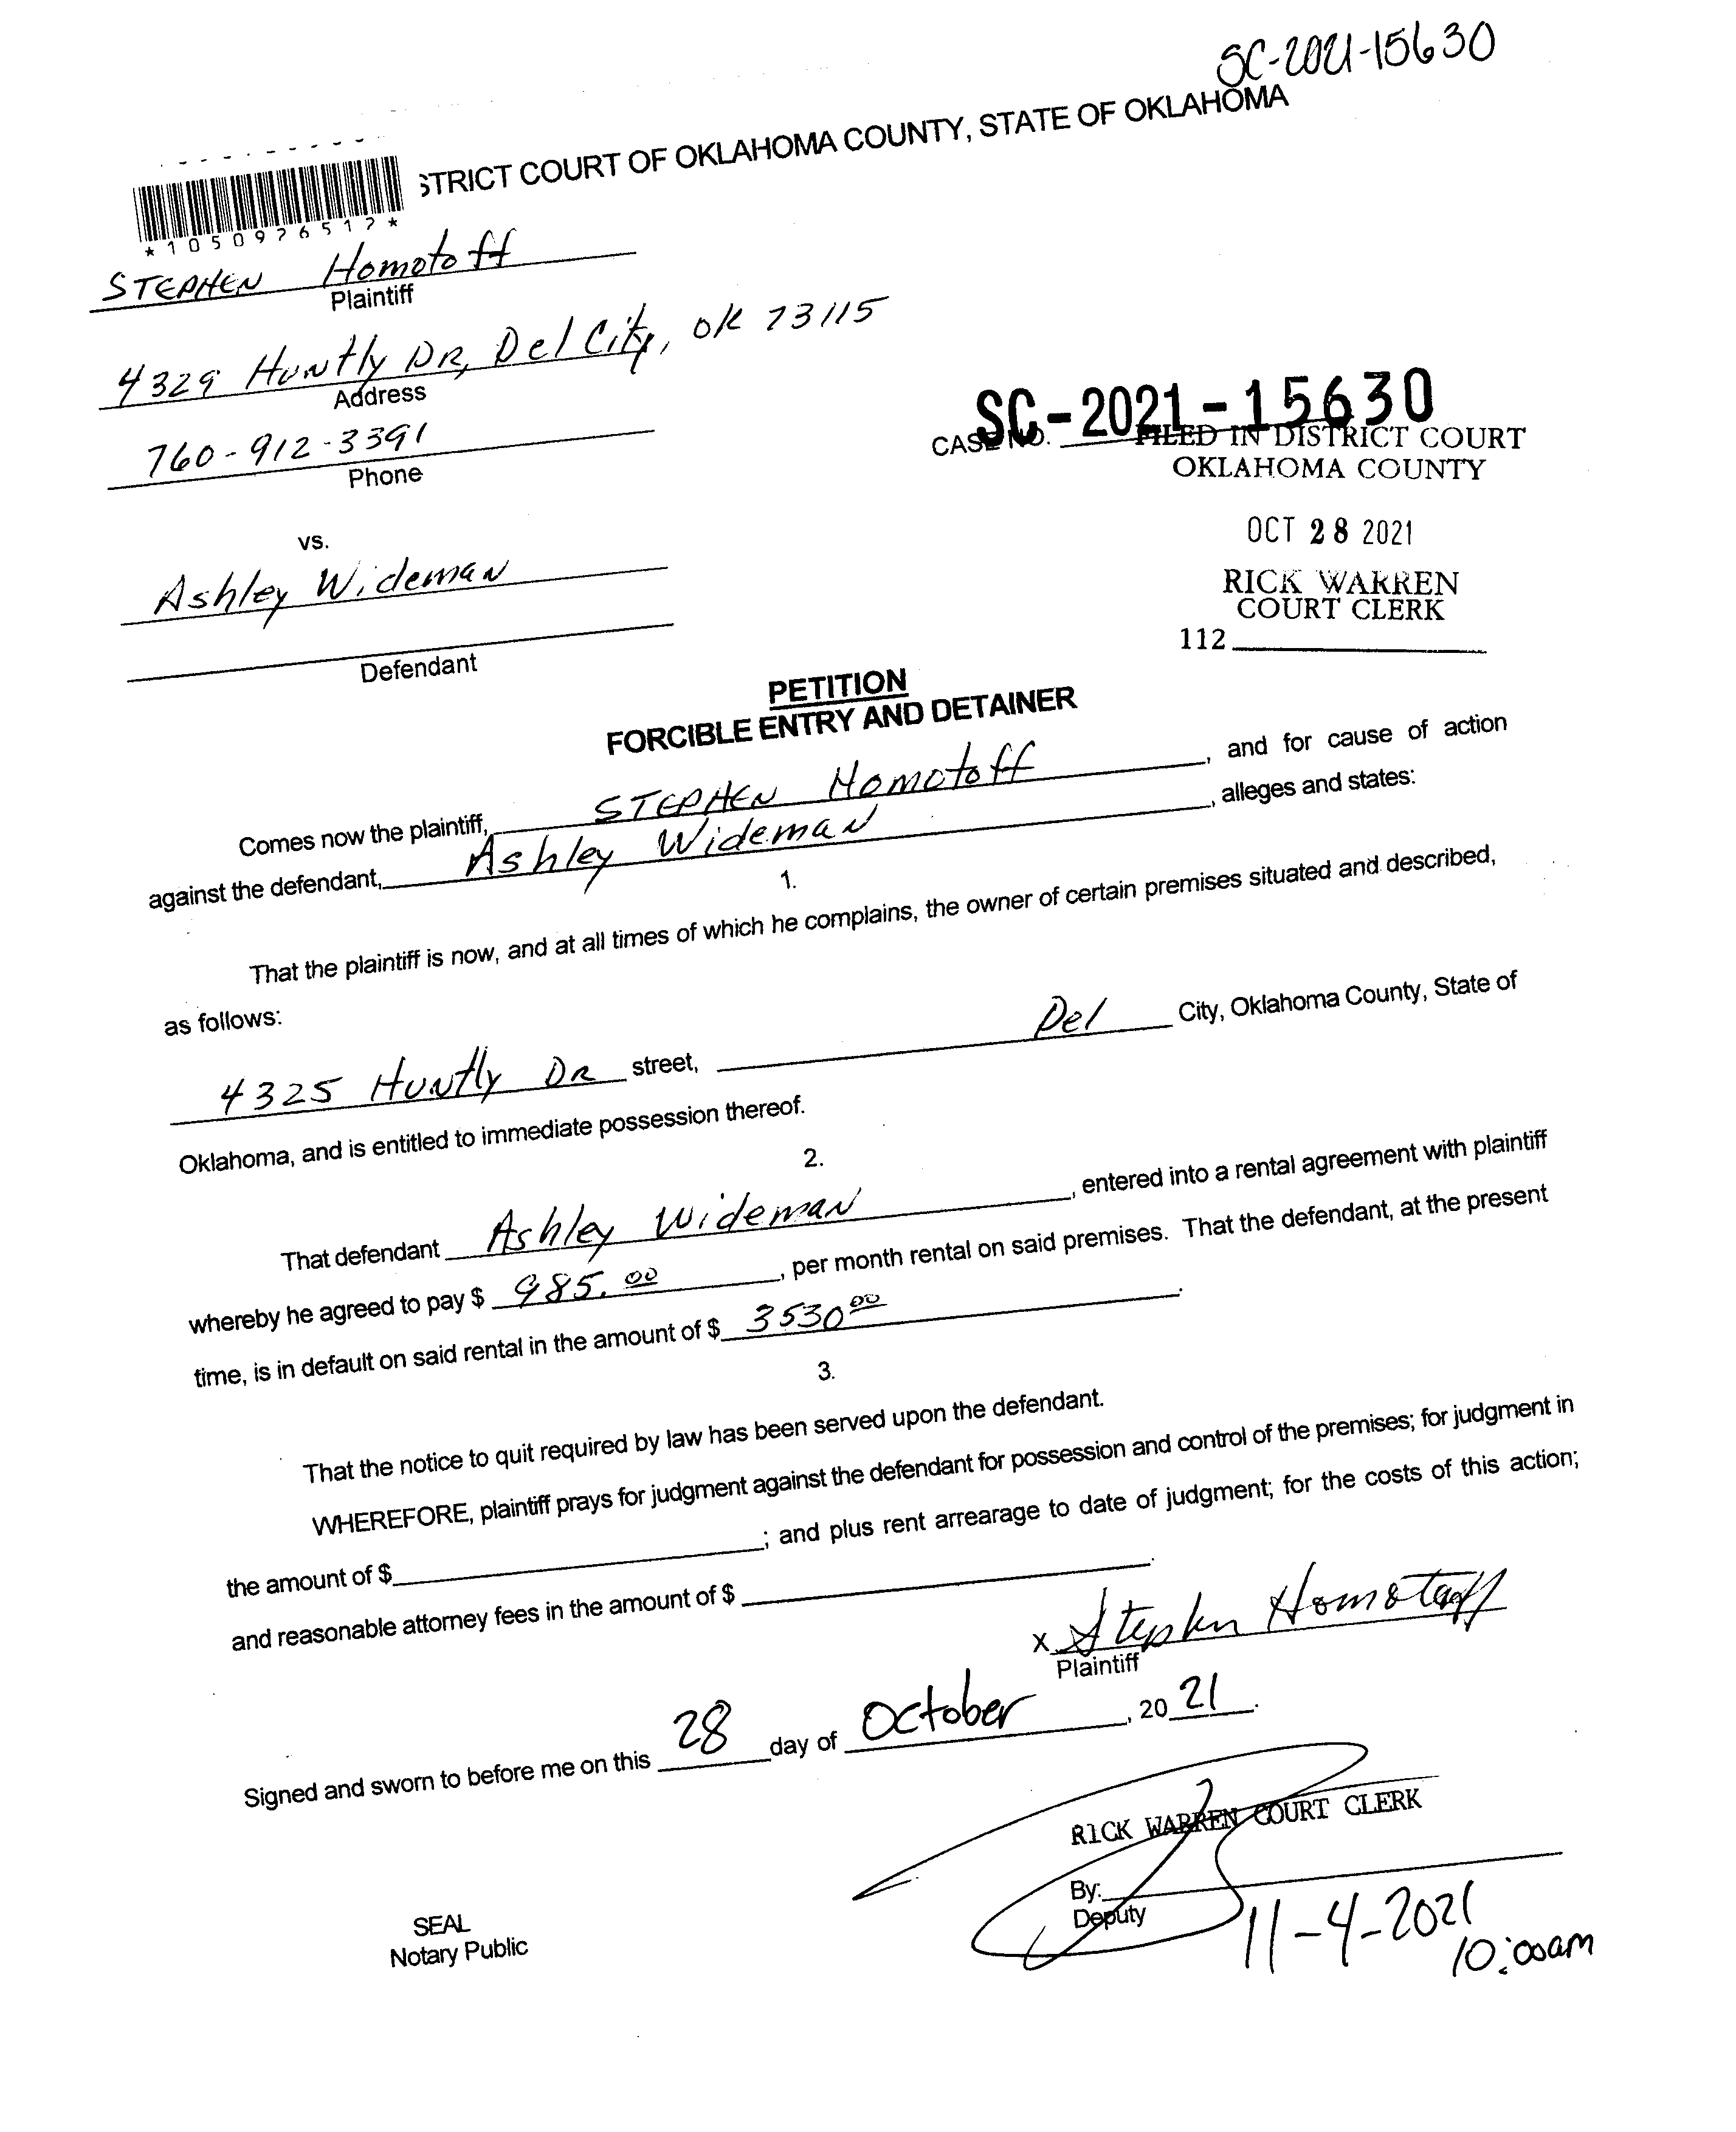 SC-2021-15630
STRICT COURT OF OKLAHOMA COUNTY, STATE OF OKLAHOMA
*1050976517*
STEPHEN Homotoff
Plaintiff
4329 Huntly DR, Del City, OK 73115
Address
760-912-3391
Phone
SC-2021-15630
CASE NO.
FILED IN DISTRICT COURT
OKLAHOMA COUNTY
OCT 28 2021
RICK WARREN
COURT CLERK
112
vs.
Ashley Wideman
Defendant
PETITION
FORCIBLE ENTRY AND DETAINER
Comes now the plaintiff, STEPHEN Homotoff, and for cause of action
against the defendant, Ashley Wideman, alleges and states:
1.
That the plaintiff is now, and at all times of which he complains, the owner of certain premises situated and described,
as follows:
4325 Huntly DR street, Del City, Oklahoma County, State of
Oklahoma, and is entitled to immediate possession thereof.
2.
That defendant Ashley Wideman, entered into a rental agreement with plaintiff
whereby he agreed to pay $ 985.00, per month rental on said premises. That the defendant, at the present
time, is in default on said rental in the amount of $ 3530 00.
3.
That the notice to quit required by law has been served upon the defendant.
WHEREFORE, plaintiff prays for judgment against the defendant for possession and control of the premises; for judgment in
the amount of $ ; and plus rent arrearage to date of judgment; for the costs of this action;
and reasonable attorney fees in the amount of $ .
x Stephen Homotoff
Plaintiff
Signed and sworn to before me on this 28 day of October, 2021.
RICK WARREN COURT CLERK
By:
Deputy
11-4-2021
10:00am
SEAL
Notary Public